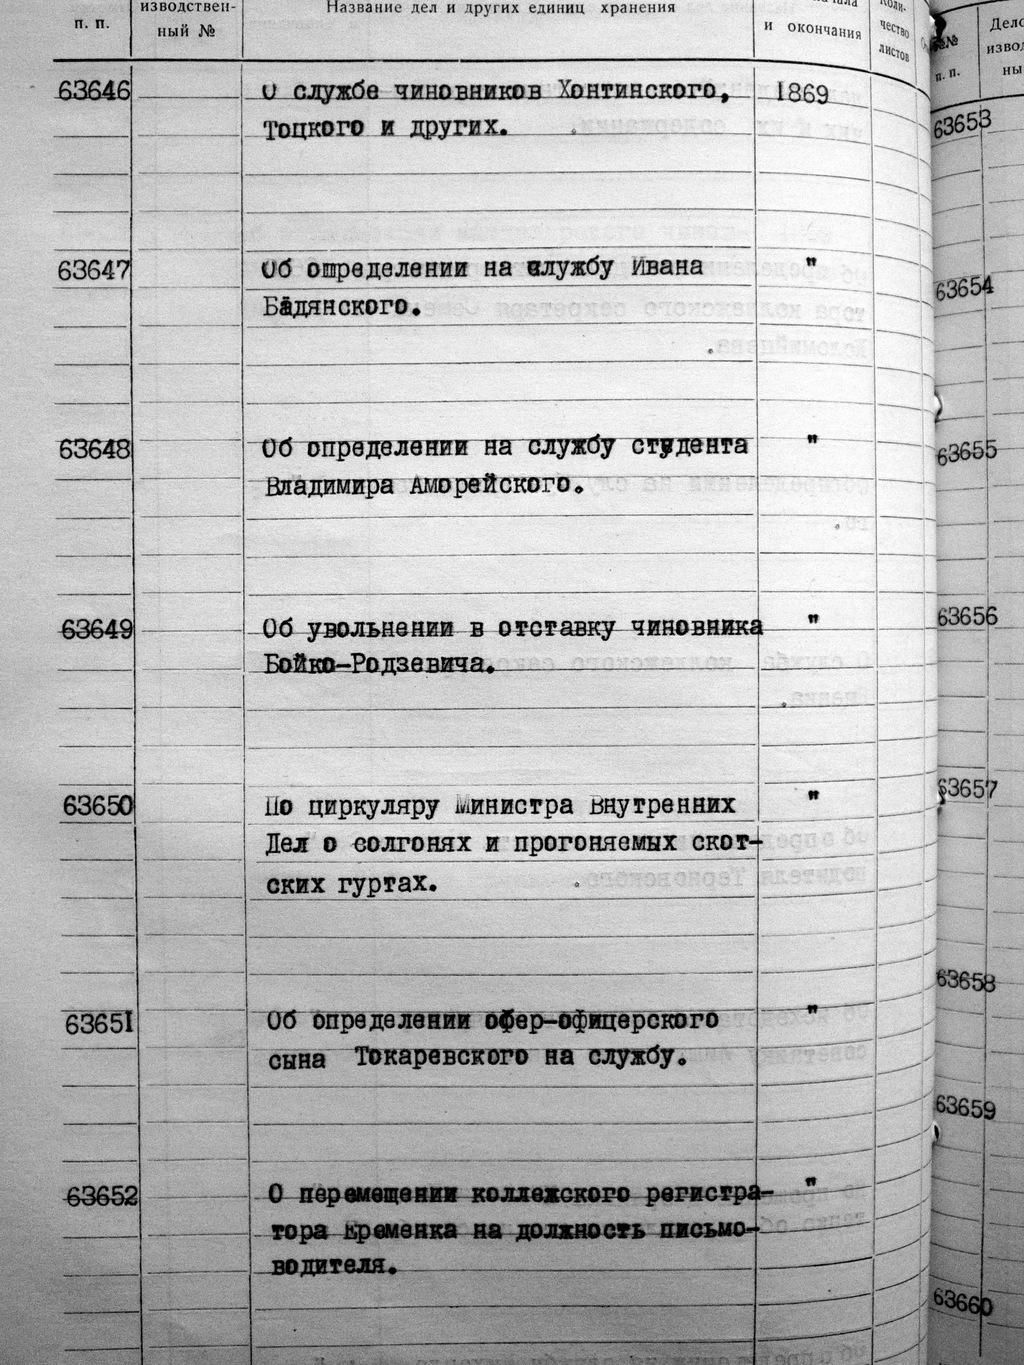 п. п.
изводствен-
ный №
Название дел и других единиц хранения
и окончания
Коли-
чество
листов
63646 О службе чиновников Хонтинского, 1869
Тоцкого и других.
63647 Об определении на службу Ивана "
Бадянского.
63648 Об определении на службу студента "
Владимира Аморейского.
63649 Об увольнении в отставку чиновника "
Бойко-Родзевича.
63650 По циркуляру Министра Внутренних "
Дел о солгонях и прогоняемых скот-
ских гуртах.
63651 Об определении офер-офицерского "
сына Токаревского на службу.
63652 О перемещении коллежского регистра- "
тора Еременка на должность письмо-
водителя.
№№
п. п.
Дело
извод
ны
63653
63654
63655
63656
63657
63658
63659
63660